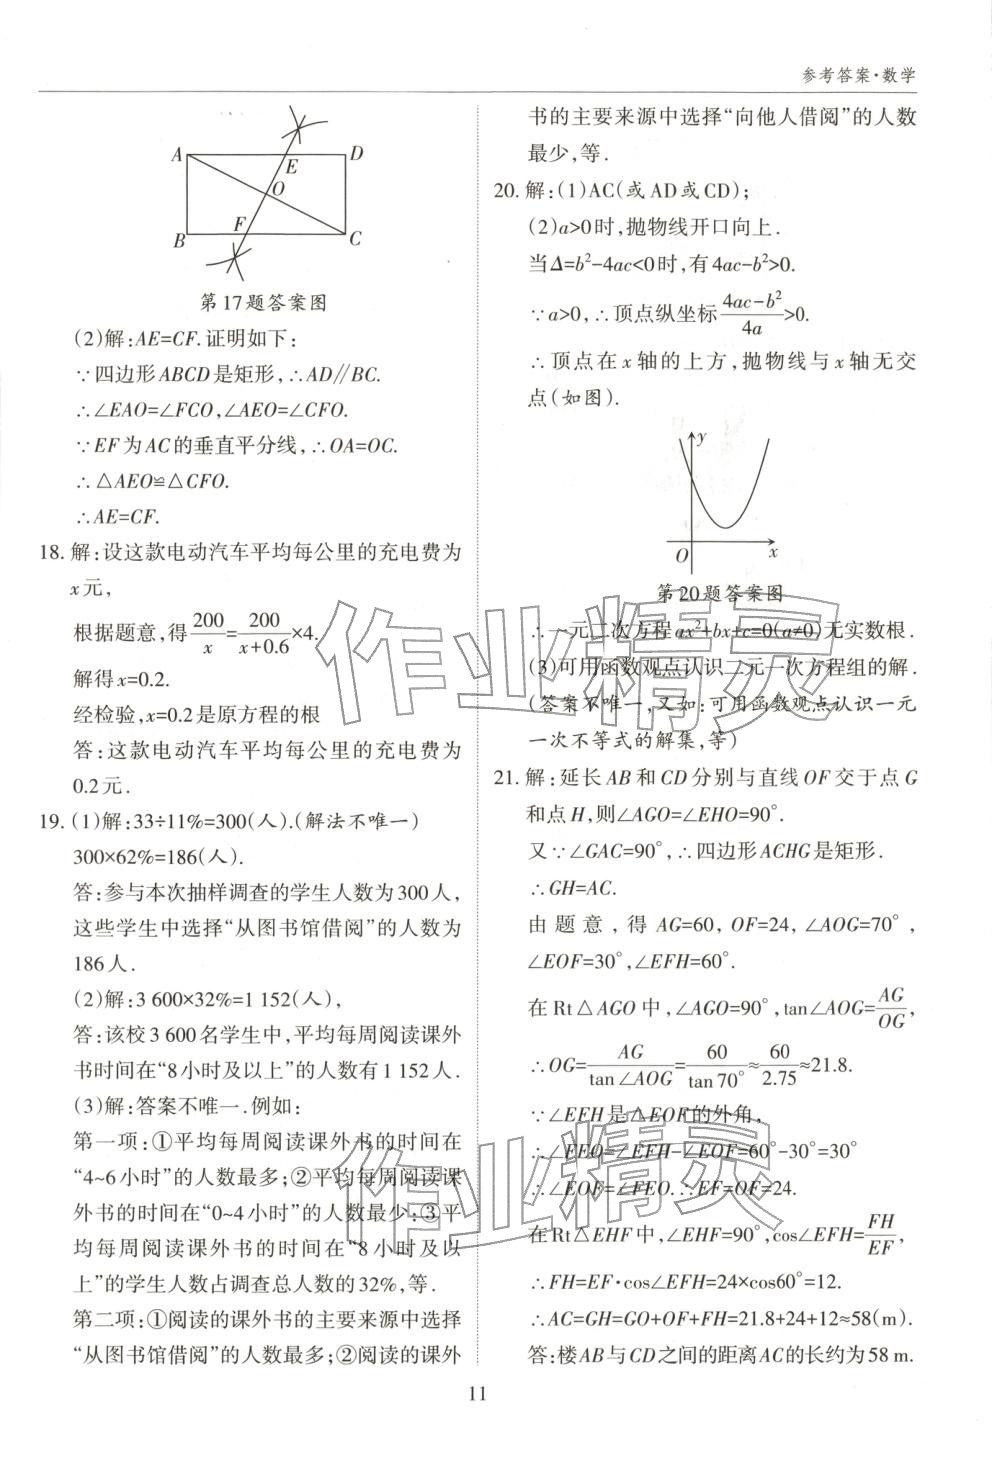 参考答案·数学
A
D
E
O
F
B
C
第17题答案图
(2)解:AE=CF.证明如下:
∵四边形ABCD是矩形,∴AD∥BC.
∴∠EAO=∠FCO,∠AEO=∠CFO.
∵EF为AC的垂直平分线,∴OA=OC.
∴△AEO≌△CFO.
∴AE=CF.
18. 解:设这款电动汽车平均每公里的充电费为
x元,
根据题意,得200/x=200/(x+0.6)×4.
解得x=0.2.
经检验,x=0.2是原方程的根
答:这款电动汽车平均每公里的充电费为
0.2元.
19. (1)解:33÷11%=300(人).(解法不唯一)
300×62%=186(人).
答:参与本次抽样调查的学生人数为300人,
这些学生中选择“从图书馆借阅”的人数为
186人.
(2)解:3 600×32%=1 152(人),
答:该校3 600名学生中,平均每周阅读课外
书时间在“8小时及以上”的人数有1 152人.
(3)解:答案不唯一.例如:
第一项:①平均每周阅读课外书的时间在
“4~6小时”的人数最多;②平均每周阅读课
外书的时间在“0~4小时”的人数最少;③平
均每周阅读课外书的时间在“8小时及以
上”的学生人数占调查总人数的32%,等.
第二项:①阅读的课外书的主要来源中选择
“从图书馆借阅”的人数最多;②阅读的课外
书的主要来源中选择“向他人借阅”的人数
最少,等.
20. 解:(1)AC(或AD或CD);
(2)a>0时,抛物线开口向上.
当Δ=b²-4ac<0时,有4ac-b²>0.
∵a>0,∴顶点纵坐标(4ac-b²)/4a>0.
∴顶点在x轴的上方,抛物线与x轴无交
点(如图).
y
O
x
第20题答案图
∴一元二次方程ax²+bx+c=0(a≠0)无实数根.
(3)可用函数观点认识二元一次方程组的解.
(答案不唯一,又如:可用函数观点认识一元
一次不等式的解集,等)
21. 解:延长AB和CD分别与直线OF交于点G
和点H,则∠AGO=∠EHO=90°.
又∵∠GAC=90°,∴四边形ACHG是矩形.
∴GH=AC.
由题意,得AG=60,OF=24,∠AOG=70°,
∠EOF=30°,∠EFH=60°.
在Rt△AGO中,∠AGO=90°,tan∠AOG=AG/OG,
∴OG=AG/tan∠AOG=60/tan70°≈60/2.75≈21.8.
∵∠EFH是△EOF的外角,
∴∠FEO=∠EFH-∠EOF=60°-30°=30°
∴∠EOF=∠FEO.∴EF=OF=24.
在Rt△EHF中,∠EHF=90°,cos∠EFH=FH/EF,
∴FH=EF·cos∠EFH=24×cos60°=12.
∴AC=GH=GO+OF+FH=21.8+24+12≈58(m).
答:楼AB与CD之间的距离AC的长约为58 m.
作业精灵
作业精灵
11